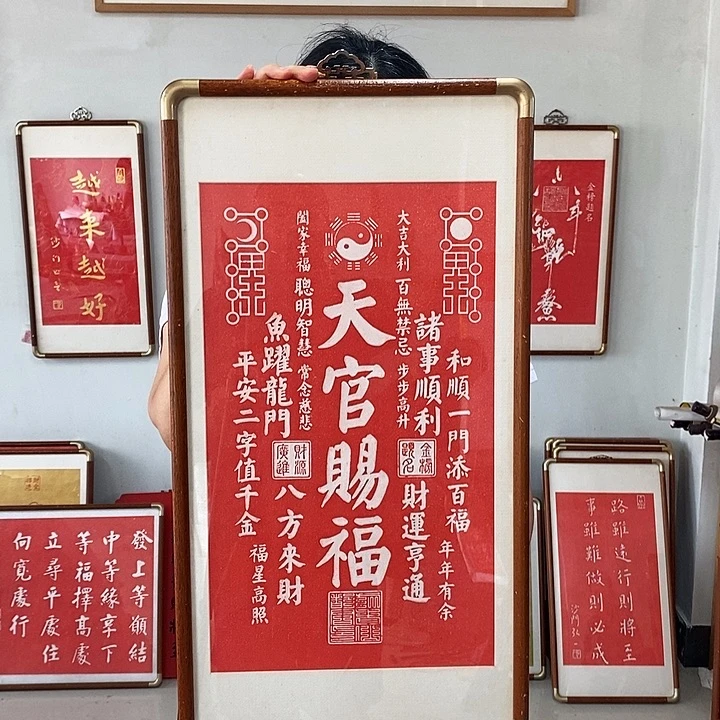 和順一門添百福
年年有余
諸事順利
金榜題名
財運亨通
大吉大利
百無禁忌
步步高升
天官賜福
闔家幸福
聰明智慧
常念慈悲
魚躍龍門
財源廣進
八方來財
平安二字值千金
福星高照
越來越好
金榜題名
發上等願結
中等緣享下
等福擇高處
立尋平處住
向寬處行
路雖遠行則將至
事雖難做則必成